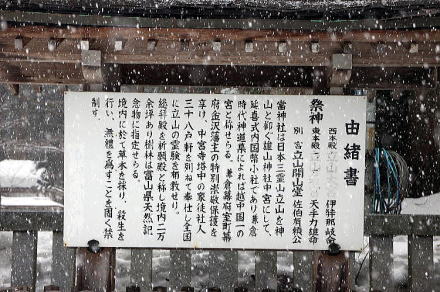 由緒書
祭神
西本殿 立山 伊弉那岐命
東本殿 天手力雄命
別宮 立山開山堂 佐伯有頼公
當神社は日本三霊山立山を神
山と仰ぐ雄山神社中宮にして、
延喜式内國幣小社であり兼倉
時代神道集によれば越中國一の
宮と称せらる。兼倉幕府室町幕
府金沢藩主の特別崇敬保護を
享け、中宮寺塔中の衆徒社人
三十八戸軒を列ねて奉仕し全国
に立山の霊験を布教せり。
総拝殿を祈願殿と称し境内二万
余坪あり樹林は富山県天然記
念物に指定せらる。
境内に於て草木を採り、殺生を
行い、無禮を為すことを固く禁
制す。